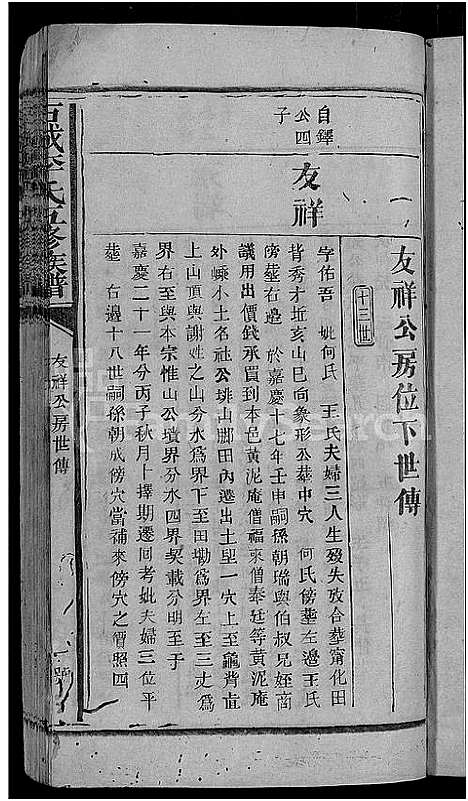 友祥公房位下世傳
十三世
自鐸
公四
子
友祥
字佑吾 妣何氏 王氏夫婦三人生歿失攷合塟甯化田
背秀才坵亥山巳向象形公塟中穴 何氏傍塟左邊王氏
傍塟右邊 於嘉慶十七年壬申嗣孫朝瑞與伯叔兄姪商
議用出價錢承買到本邑黄泥庵僧福來僧奉廷等黄泥庵
外嵊小土名社公垗山腳田內遷出土星一穴上至龜背直
上山頂與謝姓之山分水爲界下至田墈爲界左至三丈爲
界右至與本宗惟山公墳界分水四界契載分明至于
嘉慶二十一年分丙子秋月十擇期遷囘考妣夫婦三位平
塟 右邊十八世嗣孫朝成傍穴當補來傍穴之價照四
石城李氏五修族譜
友祥公房世傳